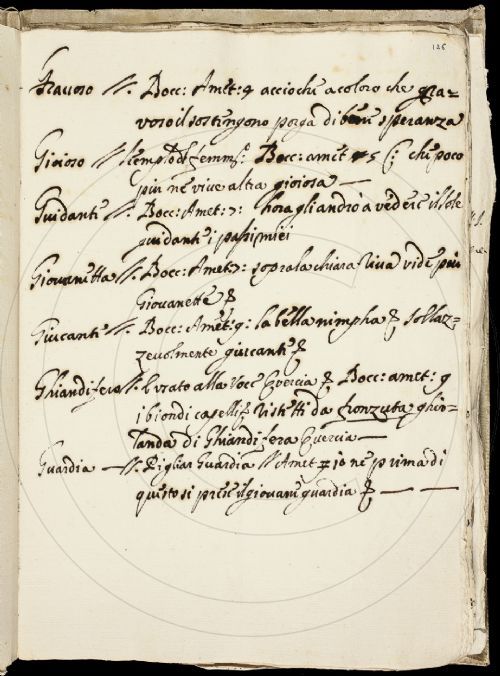 126
Gravoso //. Bocc: Amet: 4 acciochè a coloro che gra=
voso il sostengono porga di bene speranza
Gioioso // Bocc: amet 5 chi poco
più ne vive altra gioiosa —
Guidanti //. Bocc: Amet: 7: hora gli andrò a vedere il sole
guidante i passi miei
Giovanetta //. Bocc: Amet 7: sopra la chiara riva vide più
Giovanette
Giucante //. Bocc: Amet: 9: la bella nimpha sollaz=
zevolmente giucante
Ghiandifero //. usato alla voce Quercia Bocc: amet: 9
i biondi capelli ristretti da fronzuta ghir=
landa di Ghiandifera Quercia —
Guardia —//. Pigliar Guardia // Amet 10 ne prima di
questo si prese il giovane guardia — —